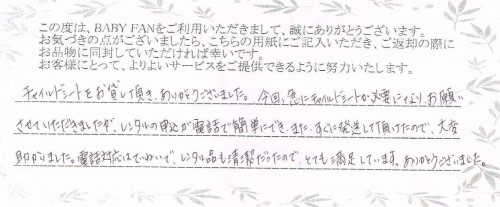 この度は、BABY FANをご利用いただきまして、誠にありがとうございます。
お気づきの点がございましたら、こちらの用紙にご記入いただき、ご返却の際に
お品物に同封していただければ幸いです。
お客様にとって、よりよいサービスをご提供できるように努力いたします。
チャイルドシートをお貸し頂き、ありがとうございました。今回、急にチャイルドシートが必要になり、お願い
させていただきましたが、レンタルの申込が電話で簡単にでき、また、すぐに発送して頂けたので、大変
助かりました。電話対応はていねいで、レンタル品も清潔だったので、とても満足しています。ありがとうございました。